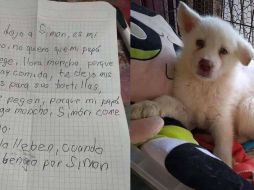 dejo a Simon, es mi
no quero que mi papá
pege, llora mancho, porque
ay comida, te dejo mis
s para sus tortillas,
pegen, porque mi papá
mancho, Simón come
o
la lleben, cuando
benga por Simon